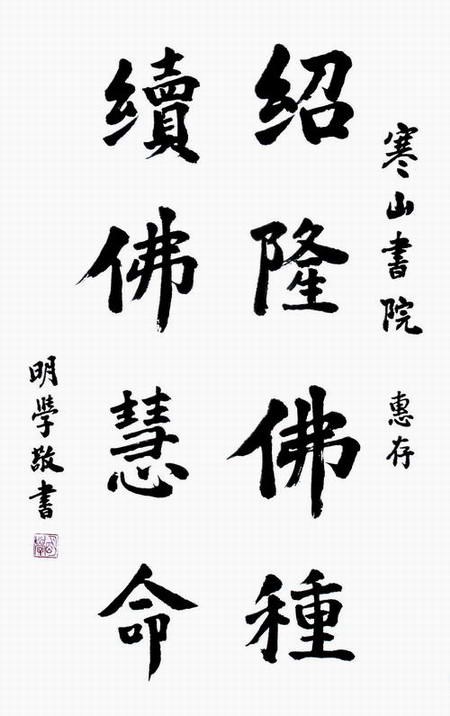 寒山書院 惠存
紹隆佛種
續佛慧命
明學敬書